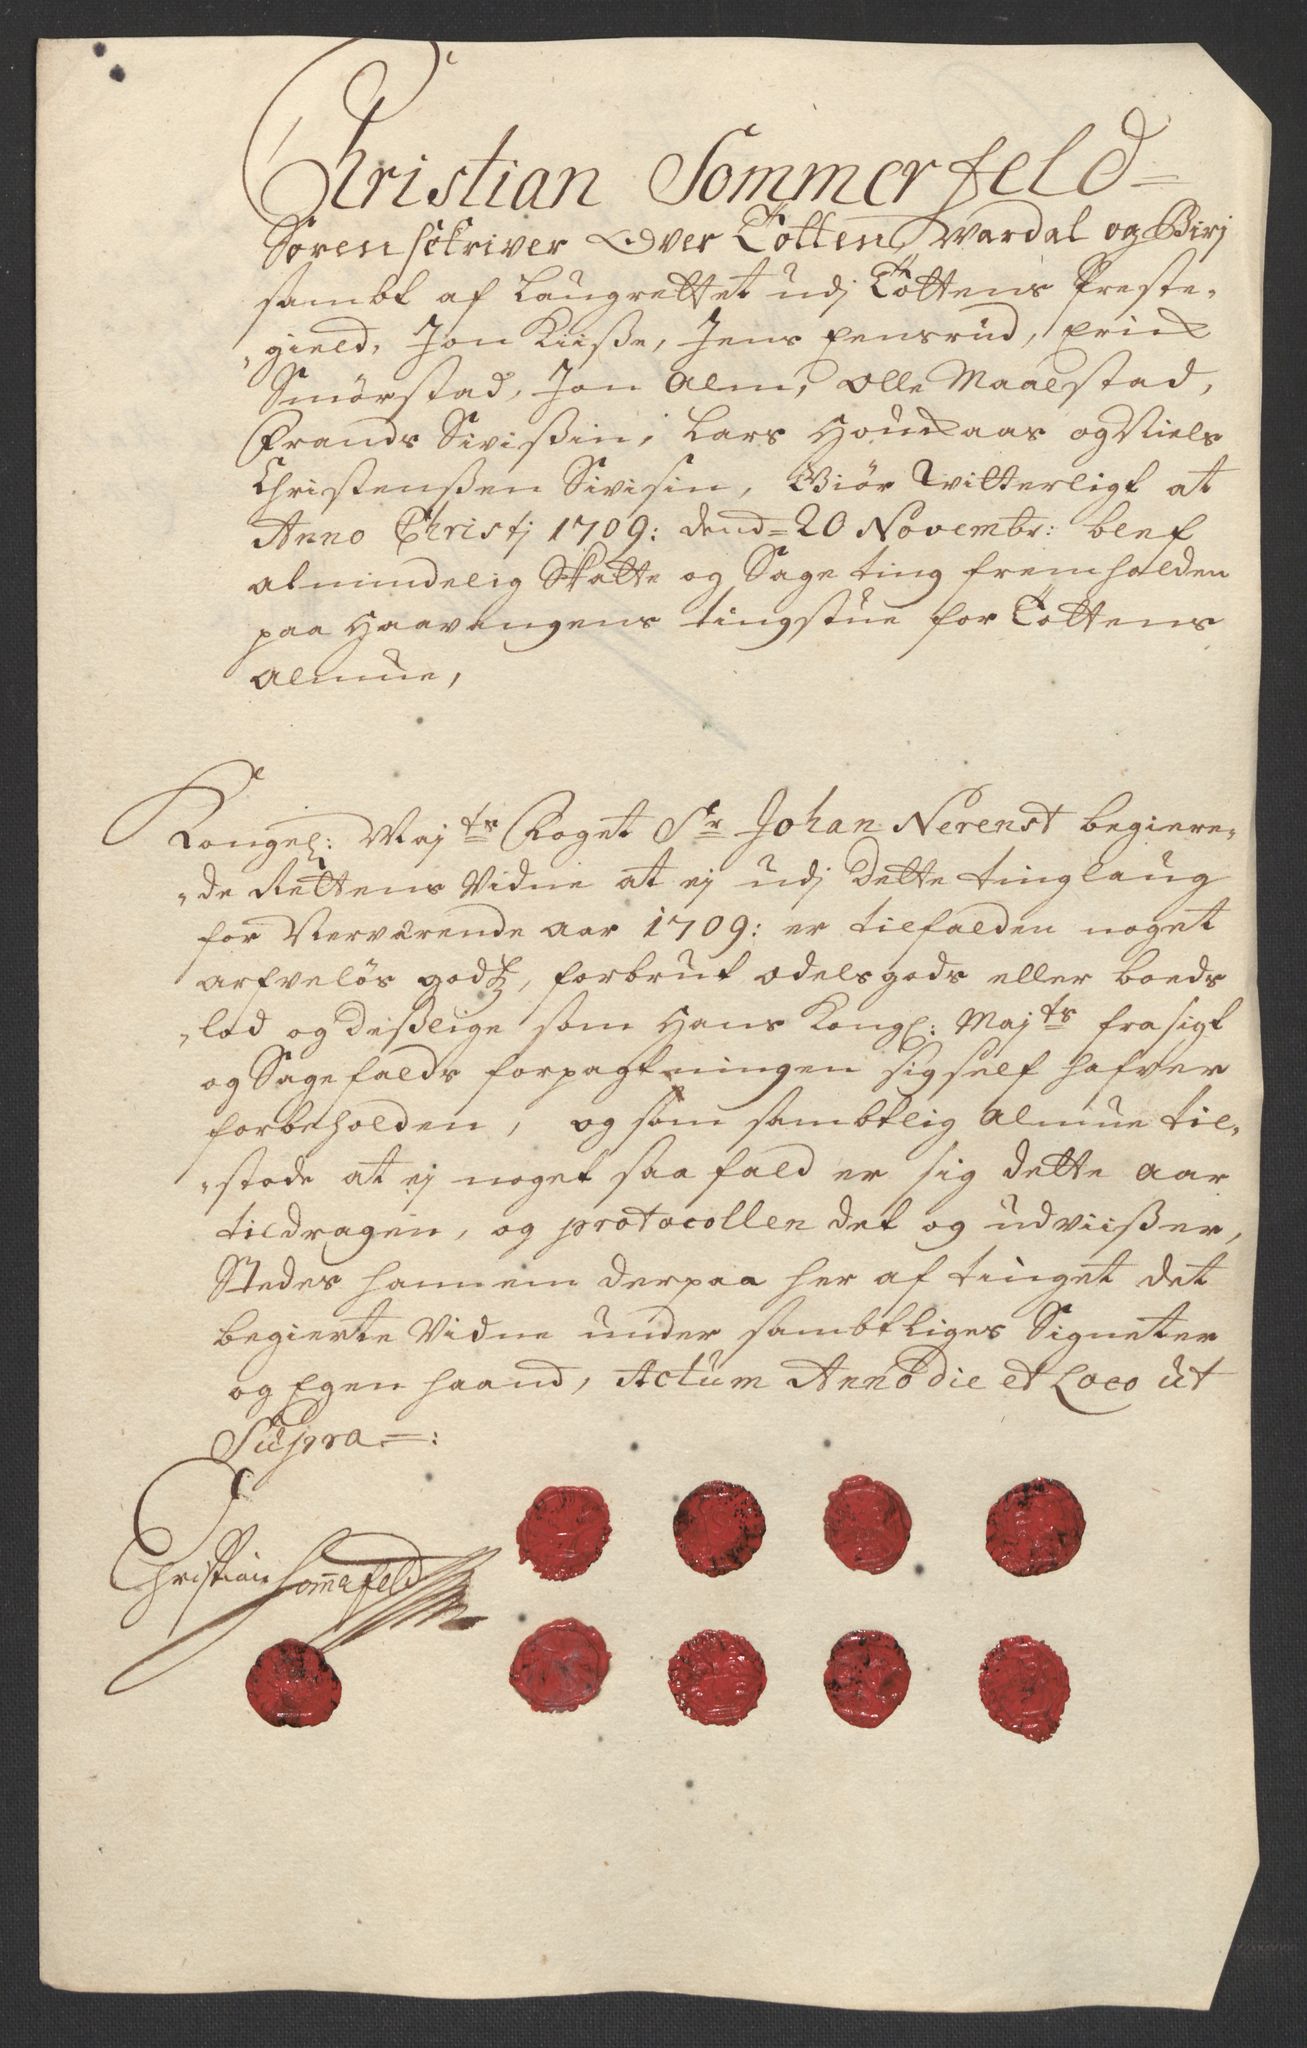 Christian Sommerfeld
Sorenschriver Over Totten, Wardal og Birj
sambt af Laugrettet udj Tottens Preste,
gield, Jon Kiiße, Jens Fensrud, Erich
Smörstad, Jon Alm, Olle Maalstad,
Frands Sivißin, Lars og Niels
Christenßen Sivisin, Giör Witterligt at
Anno Christj 1709: dend 20 Novembr: blef
almindelig Skatte og Sageting fremholden
paa Haavangens tingstue for Tottens
Almue,
Kongel: Maj.ts Foget Sr Johan Nerenst begiere,
de Rettens Vidne at ej udj Dette tinglaug
for Nerværende aar 1709: er tilfalden noget
arfveløs godtz, forbrut odelsgods eller boeds
lod og deßlige som Hans Kongl: Maj.ts fra sigt
og Sagefalds forpagtningen sig self hafver
forbeholden, og som sambtlig Almue til,
stode at ej noget saa fald er sig dette aar
tildragen, og protocollen det og udviißer,
Stedes hannem derpaa her af tinget det
begierte Vidne under sambtliges Signeter
og Egen haand, Actum Anno die et Loco ut
Supra
Christian Sommerfeld